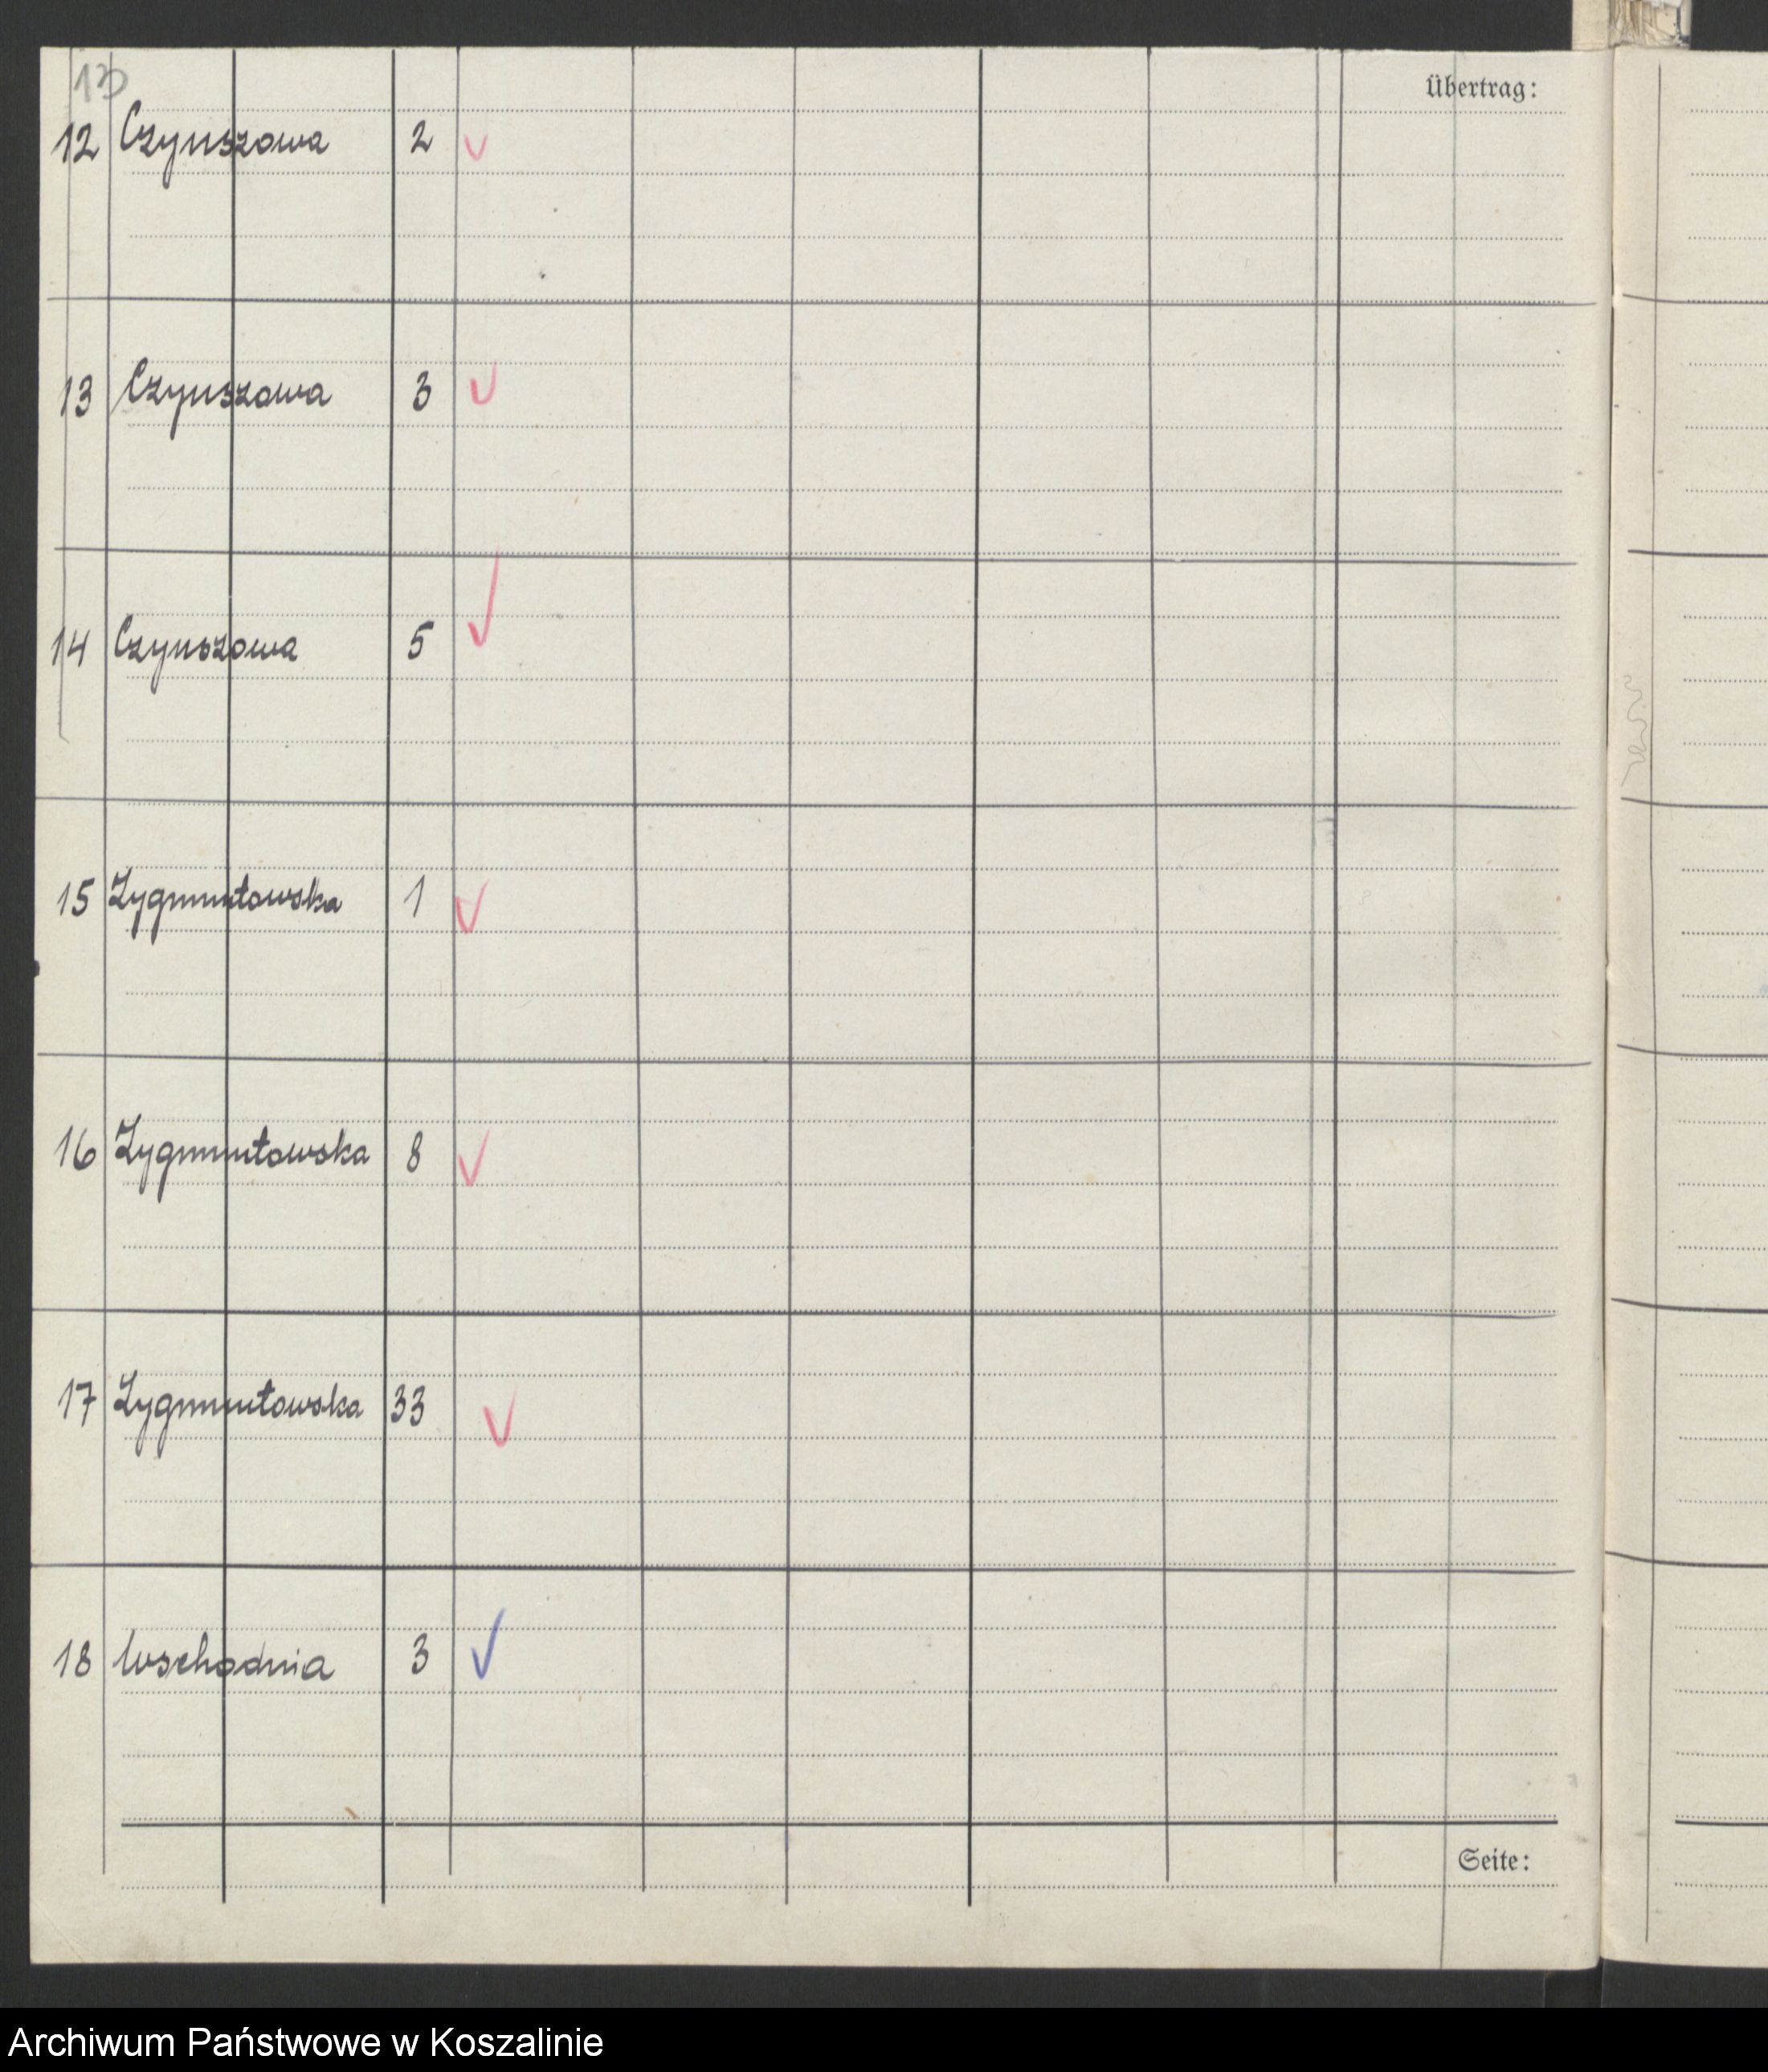 13
Übertrag:
12 Czynszowa 2 ✓
13 Czynszowa 3 ✓
14 Czynszowa 5 ✓
15 Zygmuntowska 1 ✓
16 Zygmuntowska 8 ✓
17 Zygmuntowska 33 ✓
18 Wschodnia 3 ✓
Seite:
Archiwum Państwowe w Koszalinie